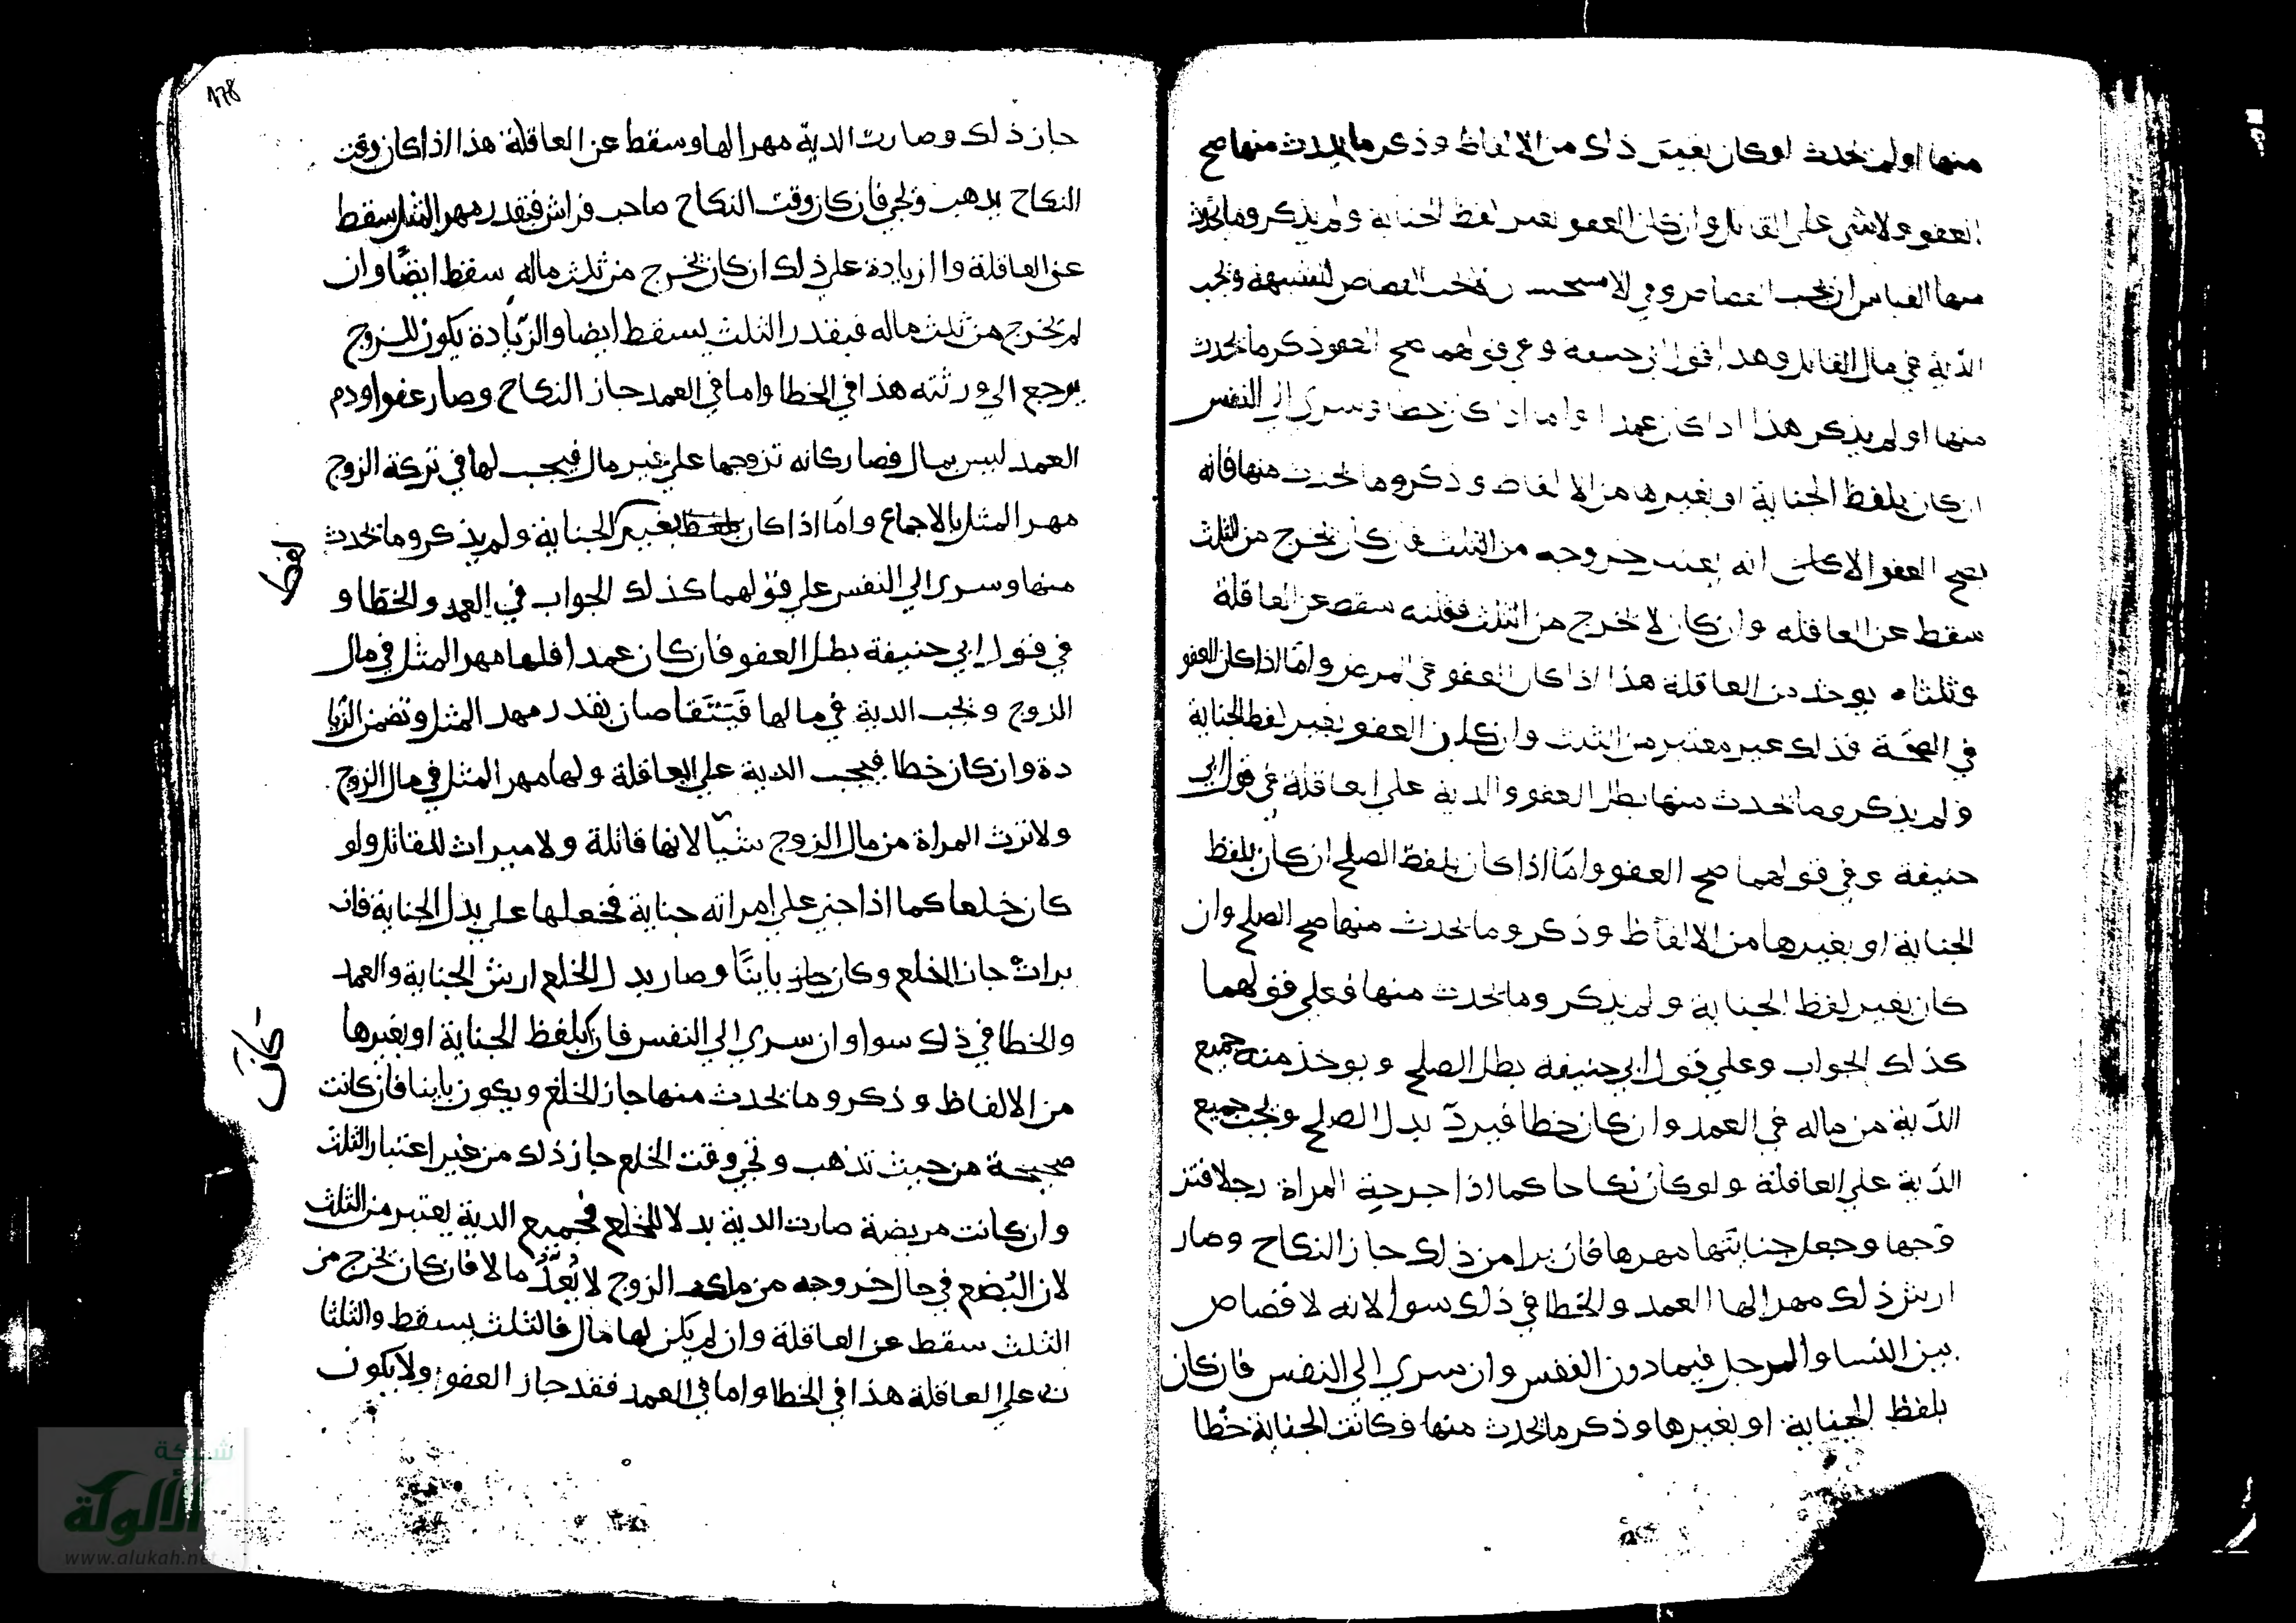 منها او لم تحدث او كان بغير ذلك من الالفاظ وذكر ما يحدث منها صح
العفو ولا شي على القاتل وان كان العفو بغير لفظ الجناية ولم يذكر وما يحدث
منها القياس ان يجب القصاص وفي الاستحسان تجب القصاص للشبهة وتجب
الدّية في مال القاتل وهذا قول ابي حنيفة وفي قولهما صح العفو ذكر ما يحدث
منها او لم يذكر هذا اذا كان عمدا واما اذا كان خطا وسرى الي النفس
ان كان بلفظ الجناية او بغيرها من الالفاظ وذكر وما تحدث منها فانه
يصح العفو الا كان انه يعتبر خروجه من الثلث فان كان يخرج من الثلث
سقط عن العاقله وان كان لا يخرج من الثلث فثلثه سقط عن العاقلة
وثلثاه يوخذ من العاقلة هذا اذا كان العفو في المرض وامّا اذا كان العفو
في الصحّة فذلك غير معتبر من الثلث وان كان العفو بغير لفظ الجناية
ولم يذكر وما تحدث منها بطل العفو والدية علي العاقلة في قول ابي
حنيفة وفي قولهما صح العفو وامّا اذا كان بلفظ الصلح ان كان بلفظ
الجناية او بغيرها من الالفاظ وذكر وما تحدث منها صح الصلح وان
كان بغير لفظ الجناية ولم يذكر وما تحدث منها فعلي قولهما
كذلك الجواب وعلي قول ابي حنيفة بطل الصلح ويوخذ منه جميع
الدّية من ماله في العمد وان كان خطا فيردّ بدل الصلح وتجب جميع
الدّية علي العاقلة ولو كان نكاحا كما اذا جرحة المراة رجلا فتز
وجها وجعل جنايتها مهرها فان برا من ذلك جاز النكاح وصار
ارش ذلك مهرا لها العمد والخطا في ذلك سوا لانه لا قصاص
بين النسا والرجل فيما دون النفس وان سري الي النفس فان كان
بلفظ الجناية او بغيرها وذكر ما تحدث منها وكانت الجناية خطا
178
جاز ذلك وصارت الدية مهرا لها وسقط عن العاقلة هذا اذا كان وقت
النكاح يذهب وتجي فان كان وقت النكاح صاحب فراش فبقدر مهر المثل سقط
عن العاقلة والزيادة علي ذلك ان كان يخرج من ثلث ماله سقط ايضًا وان
لم يخرج من ثلث ماله فبقدر الثلث يسقط ايضا والزّيادة يكون للزوج
يرجع الي ورثته هذا في الخطا واما في العمد جاز النكاح وصار عفوا ودم
العمد ليس بمال فصار كانه تزوجها علي غير مال فيجب لها في تركة الزوج
مهر المثل بالاجماع وامّا اذا كان بغير الجناية ولم يذكر وما تحدث
لفظ
منها وسري الي النفس علي قولهما كذلك الجواب في العمد والخطا و
في قول ابي حنيفة بطل العفو فان كان عمدا فلها مهر المثل في مال
الزوج وتجب الدية في مالها فيتقاصان بقدر مهر المثل وتضمن الزّيا
دة وان كان خطا فيجب الدية علي العاقلة ولها مهر المثل في مال الزوج
ولا ترث المراة من مال الزوج شيا لانها قاتلة ولا ميراث للقاتل ولو
كان خلعا كما اذا جني علي امراته جناية فخلعها علي بذل الجناية فان
برات جاز الخلع وكان جاز باينًا وصار بدل الخلع ارش الجناية والعمد
والخطا في ذلك سوا وان سري الي النفس فان بلفظ الجناية او بغيرها
كانت
من الالفاظ وذكر وما تحدث منها جاز الخلع ويكون باينا فان كانت
صحيحة من حيث تذهب وتجي وقت الخلع جاز ذلك من غير اعتبار الثلث
وان كانت مريضة صارت الدية بدلا للخلع فجميع الدية يعتبر من الثلث
لان البُضع في حال خروجه من ملك الزوج لا يُعدُّ مالا فان كان يخرج من
الثلث سقط عن العاقلة وان لم يكن لها مال فالثلث يسقط والثلثا
ن علي العاقلة هذا في الخطا واما في العمد فقد جاز العفو ولا يكون
شبكة
الألوكة
www.alukah.net